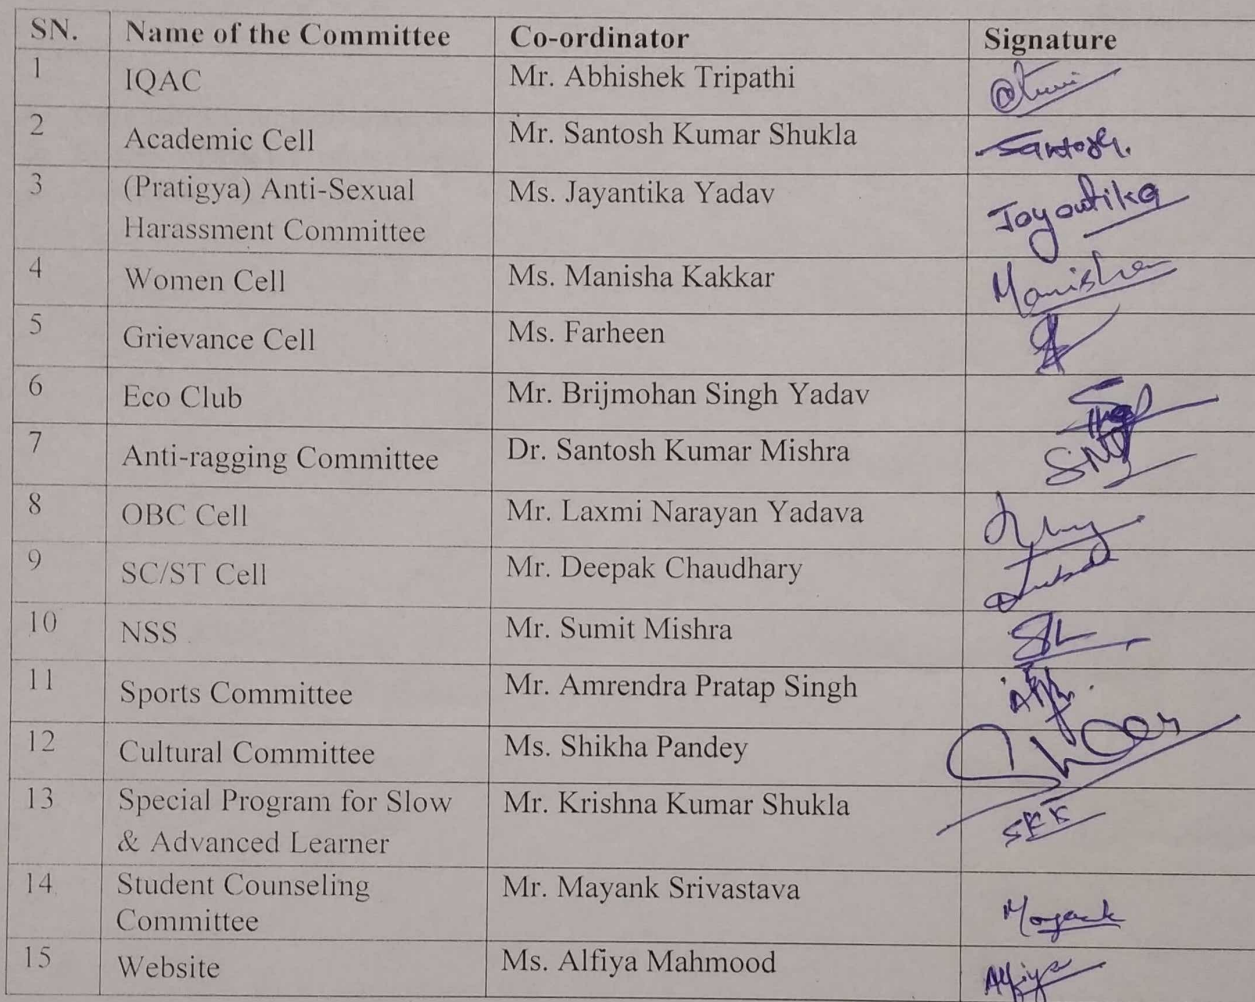 SN. Name of the Committee Co-ordinator Signature
1 IQAC Mr. Abhishek Tripathi
2 Academic Cell Mr. Santosh Kumar Shukla Santosh.
3 (Pratigya) Anti-Sexual Ms. Jayantika Yadav Jayantika
Harassment Committee
4 Women Cell Ms. Manisha Kakkar Manisha
5 Grievance Cell Ms. Farheen
6 Eco Club Mr. Brijmohan Singh Yadav
7 Anti-ragging Committee Dr. Santosh Kumar Mishra
8 OBC Cell Mr. Laxmi Narayan Yadava
9 SC/ST Cell Mr. Deepak Chaudhary
10 NSS Mr. Sumit Mishra
11 Sports Committee Mr. Amrendra Pratap Singh
12 Cultural Committee Ms. Shikha Pandey
13 Special Program for Slow Mr. Krishna Kumar Shukla
& Advanced Learner SKK
14 Student Counseling Mr. Mayank Srivastava
Committee Mayank
15 Website Ms. Alfiya Mahmood Alfiya